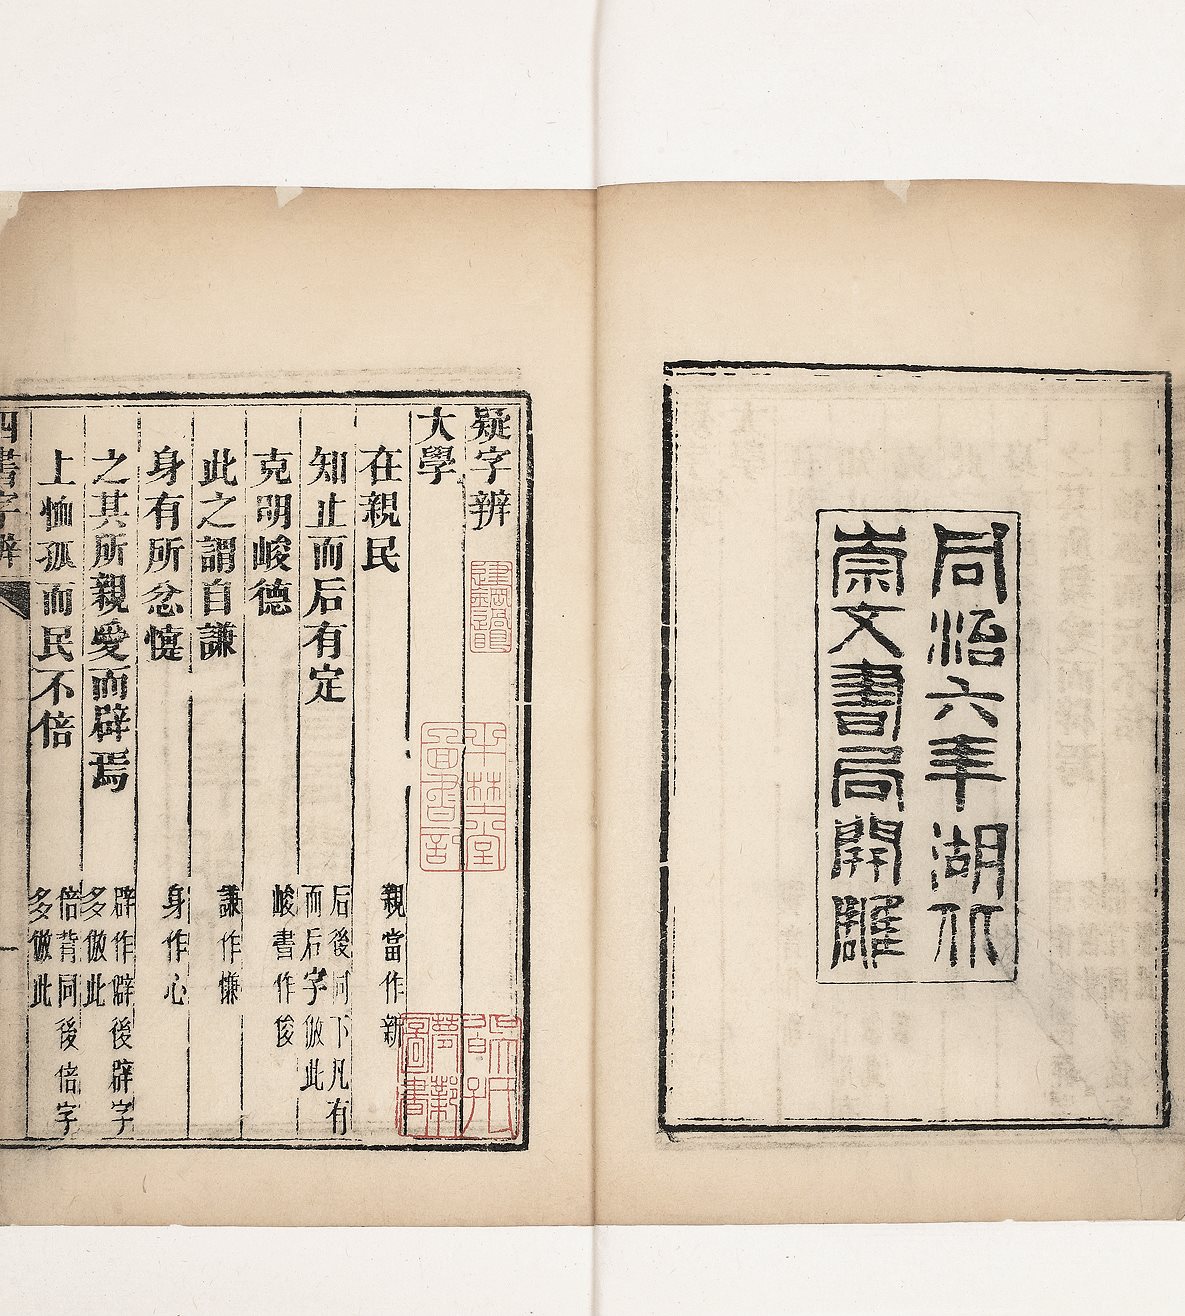 同治六年湖北
崇文書局開雕
疑字辨
大學
在親民
親當作新
知止而后有定
后後同下凡有
而后字倣此
克明峻德
峻書作俊
此之謂自謙
謙作慊
身有所忿懥
身作心
之其所親愛而辟焉
辟作僻後辟字
多倣此
上恤孤而民不倍
倍背同後倍字
多倣此
四書字辨